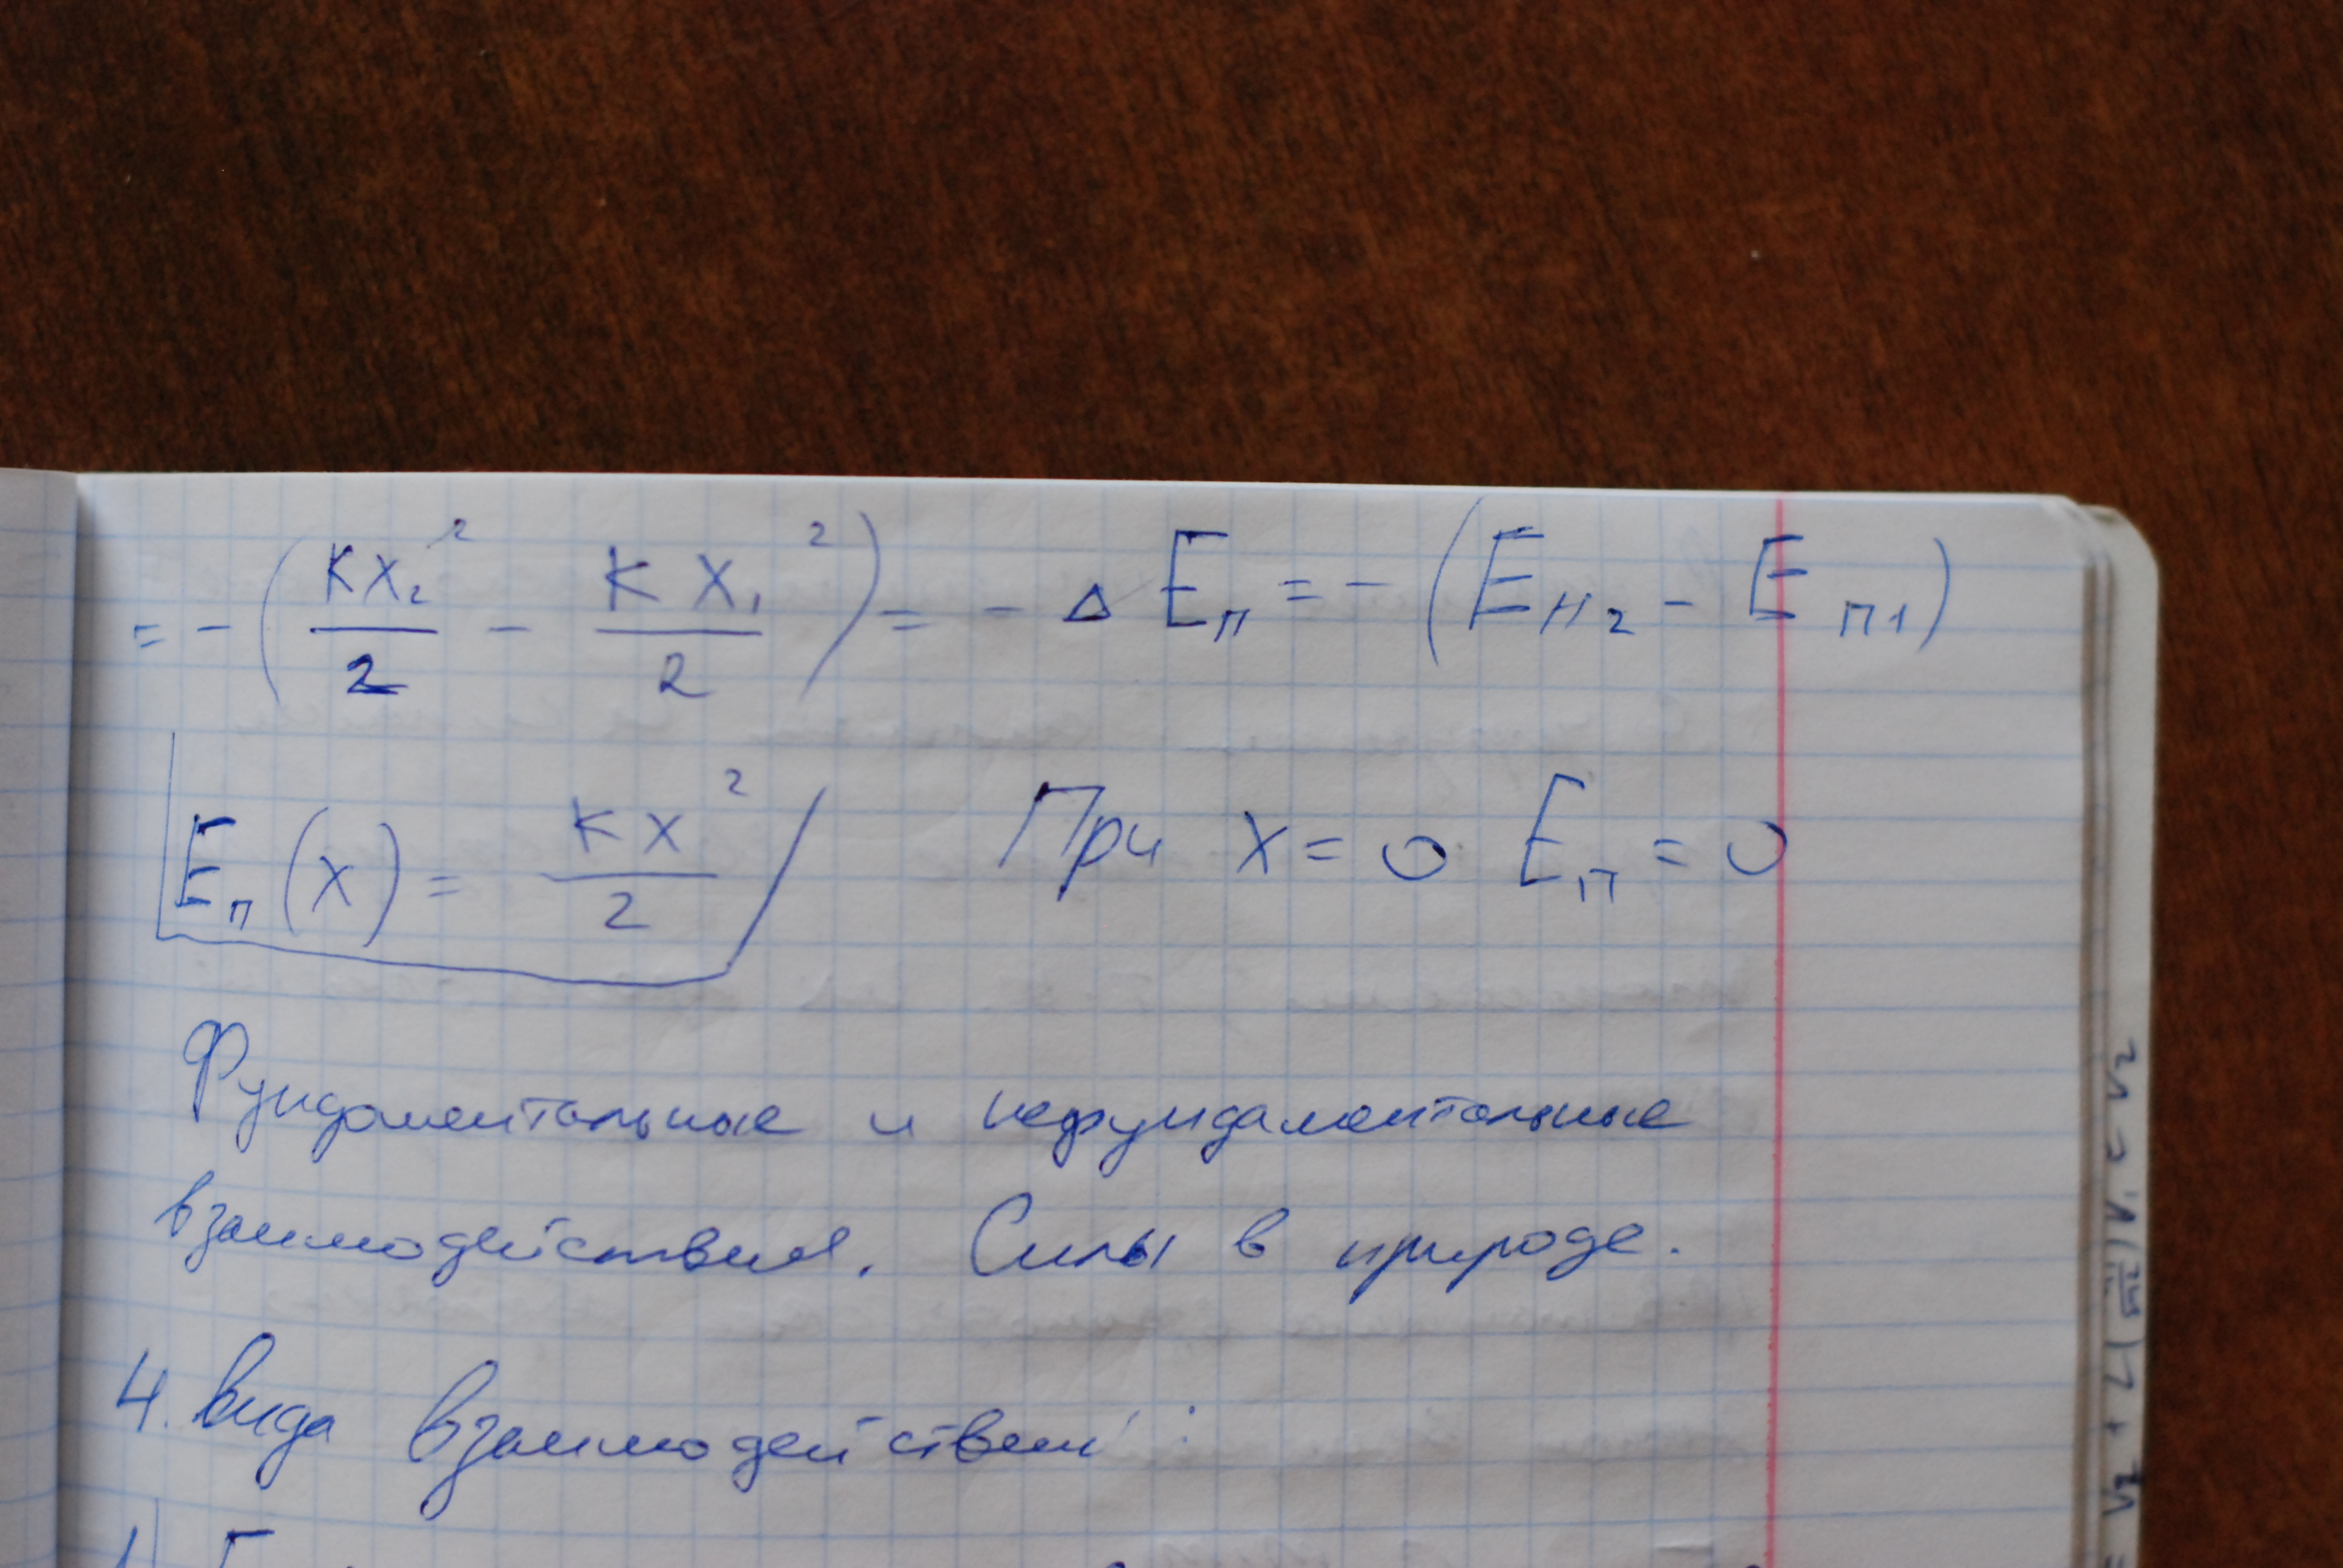 = - (kx₂²/2 - kx₁²/2) = - Δ Eп = - (Eп₂ - Eп1)
Eп(x) = kx²/2 При x = 0 Eп = 0
Фундаментальные и нефундаментальные
взаимодействия. Силы в природе.
4. вида взаимодействий: